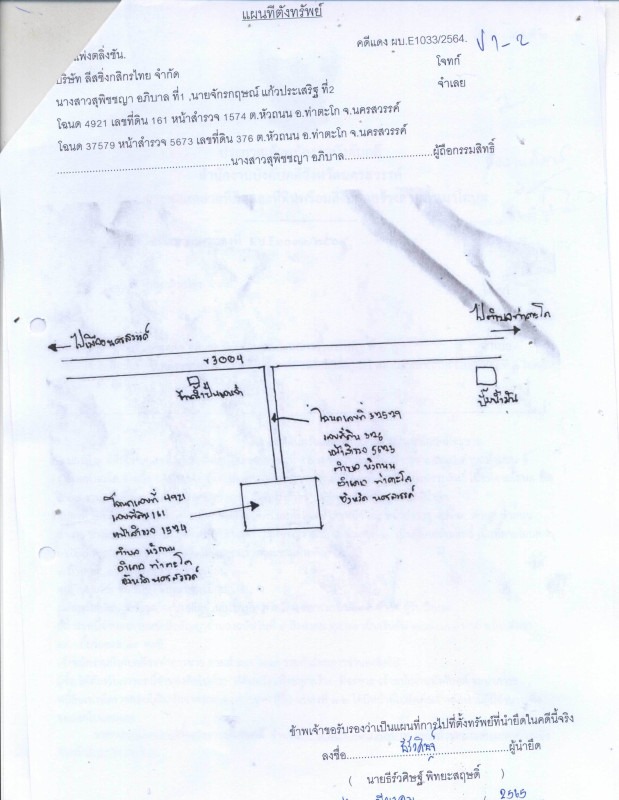 แผนที่ตั้งทรัพย์
คดีแดง ผบ.E1033/2564.
แพ่งตลิ่งชัน.
บริษัท ลีสซิ่งกสิกรไทย จำกัด โจทก์
นางสาวสุพิชชญา อภิบาล ที่1 ,นายจักรกฤษณ์ แก้วประเสริฐ ที่2 จำเลย
โฉนด 4921 เลขที่ดิน 161 หน้าสำรวจ 1574 ต.หัวถนน อ.ท่าตะโก จ.นครสวรรค์
โฉนด 37579 หน้าสำรวจ 5673 เลขที่ดิน 376 ต.หัวถนน อ.ท่าตะโก จ.นครสวรรค์
นางสาวสุพิชชญา อภิบาล ผู้ถือกรรมสิทธิ์
ไปเมืองนครสวรรค์
ไปอำเภอท่าตะโก
3004
ปั๊มน้ำมัน
โฉนดเลขที่ 37579
เลขที่ดิน 376
หน้าสำรวจ 5673
ตำบล หัวถนน
อำเภอ ท่าตะโก
จังหวัด นครสวรรค์
โฉนดเลขที่ 4921
เลขที่ดิน 161
หน้าสำรวจ 1574
ตำบล หัวถนน
อำเภอ ท่าตะโก
จังหวัด นครสวรรค์
ข้าพเจ้าขอรับรองว่าเป็นแผนที่การไปที่ตั้งทรัพย์ที่นำยึดในคดีนี้จริง
ลงชื่อ ผู้นำยึด
( นายธีร์วศิษฐ์ พิทยะสฤษดิ์ )
2565